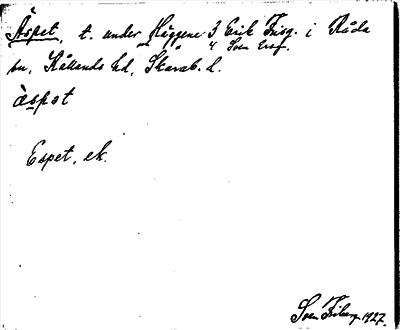 Äspet, t. under Häggene 3 Erik Frisg. i Råda
" 4 Sven Ersg.
sn, Kållands hd, Skarab. l.
äspət
Espet, ek.
Sven Friberg 1927.